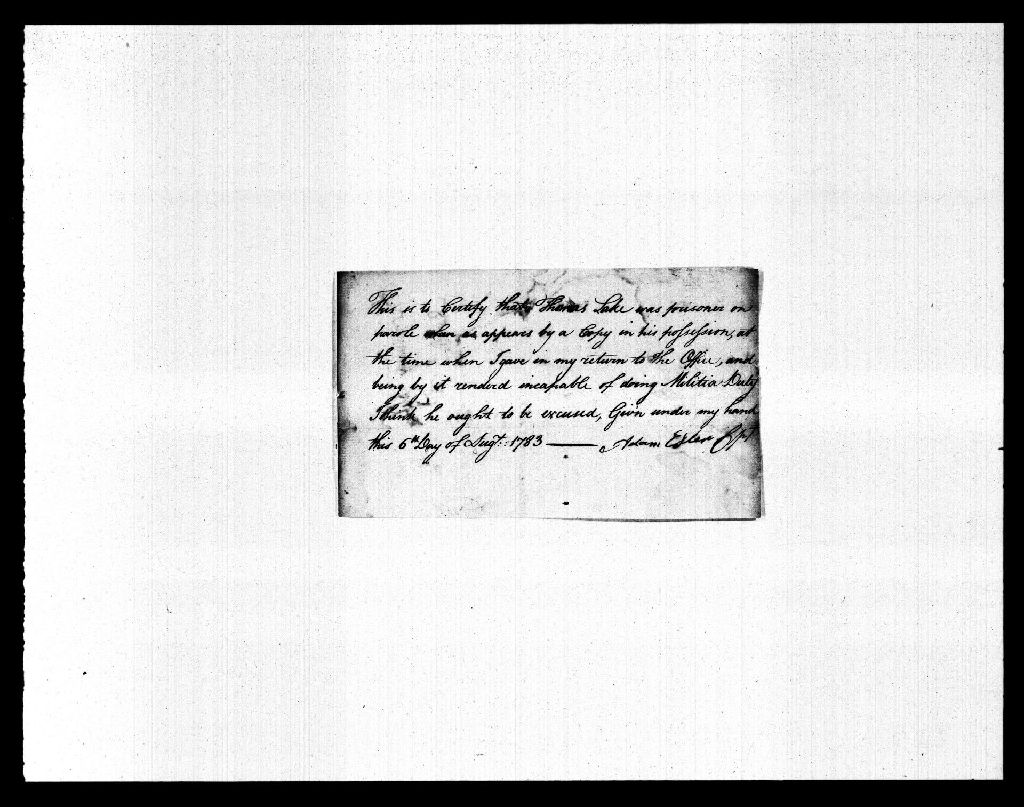 This is to Certify that Thomas Lake was prisoner on
parole as appears by a Copy in his possession, at
the time when I gave in my return to the Office, and
being by it renderd incapable of doing Militia Duty
I think he ought to be excused, Givn under my hand
this 6th Day of Augt. 1783 — Adam Cpt